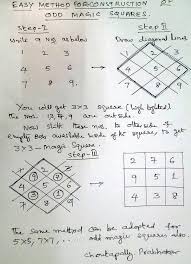 EASY METHOD FOR CONSTRUCTION OF
ODD MAGIC SQUARES.
Step-I
Step II
Write 9 nos as below
Draw diagonal lines
1 2 3
4 5 6
7 8 9
1 2 3
4 5 6
7 8 9
You will get 3×3 square (high lighted)
the nos. 1,3,7,9 are outside.
Now shift these nos. to other side of
empty box available with in the square to get
3×3 – Magic Square.
Step-III
1 2 3
4 5 6
7 8 9
2 7 6
9 5 1
4 3 8
The same method can be adopted for
5×5, 7×7, ... odd magic squares also.
Prabhakar